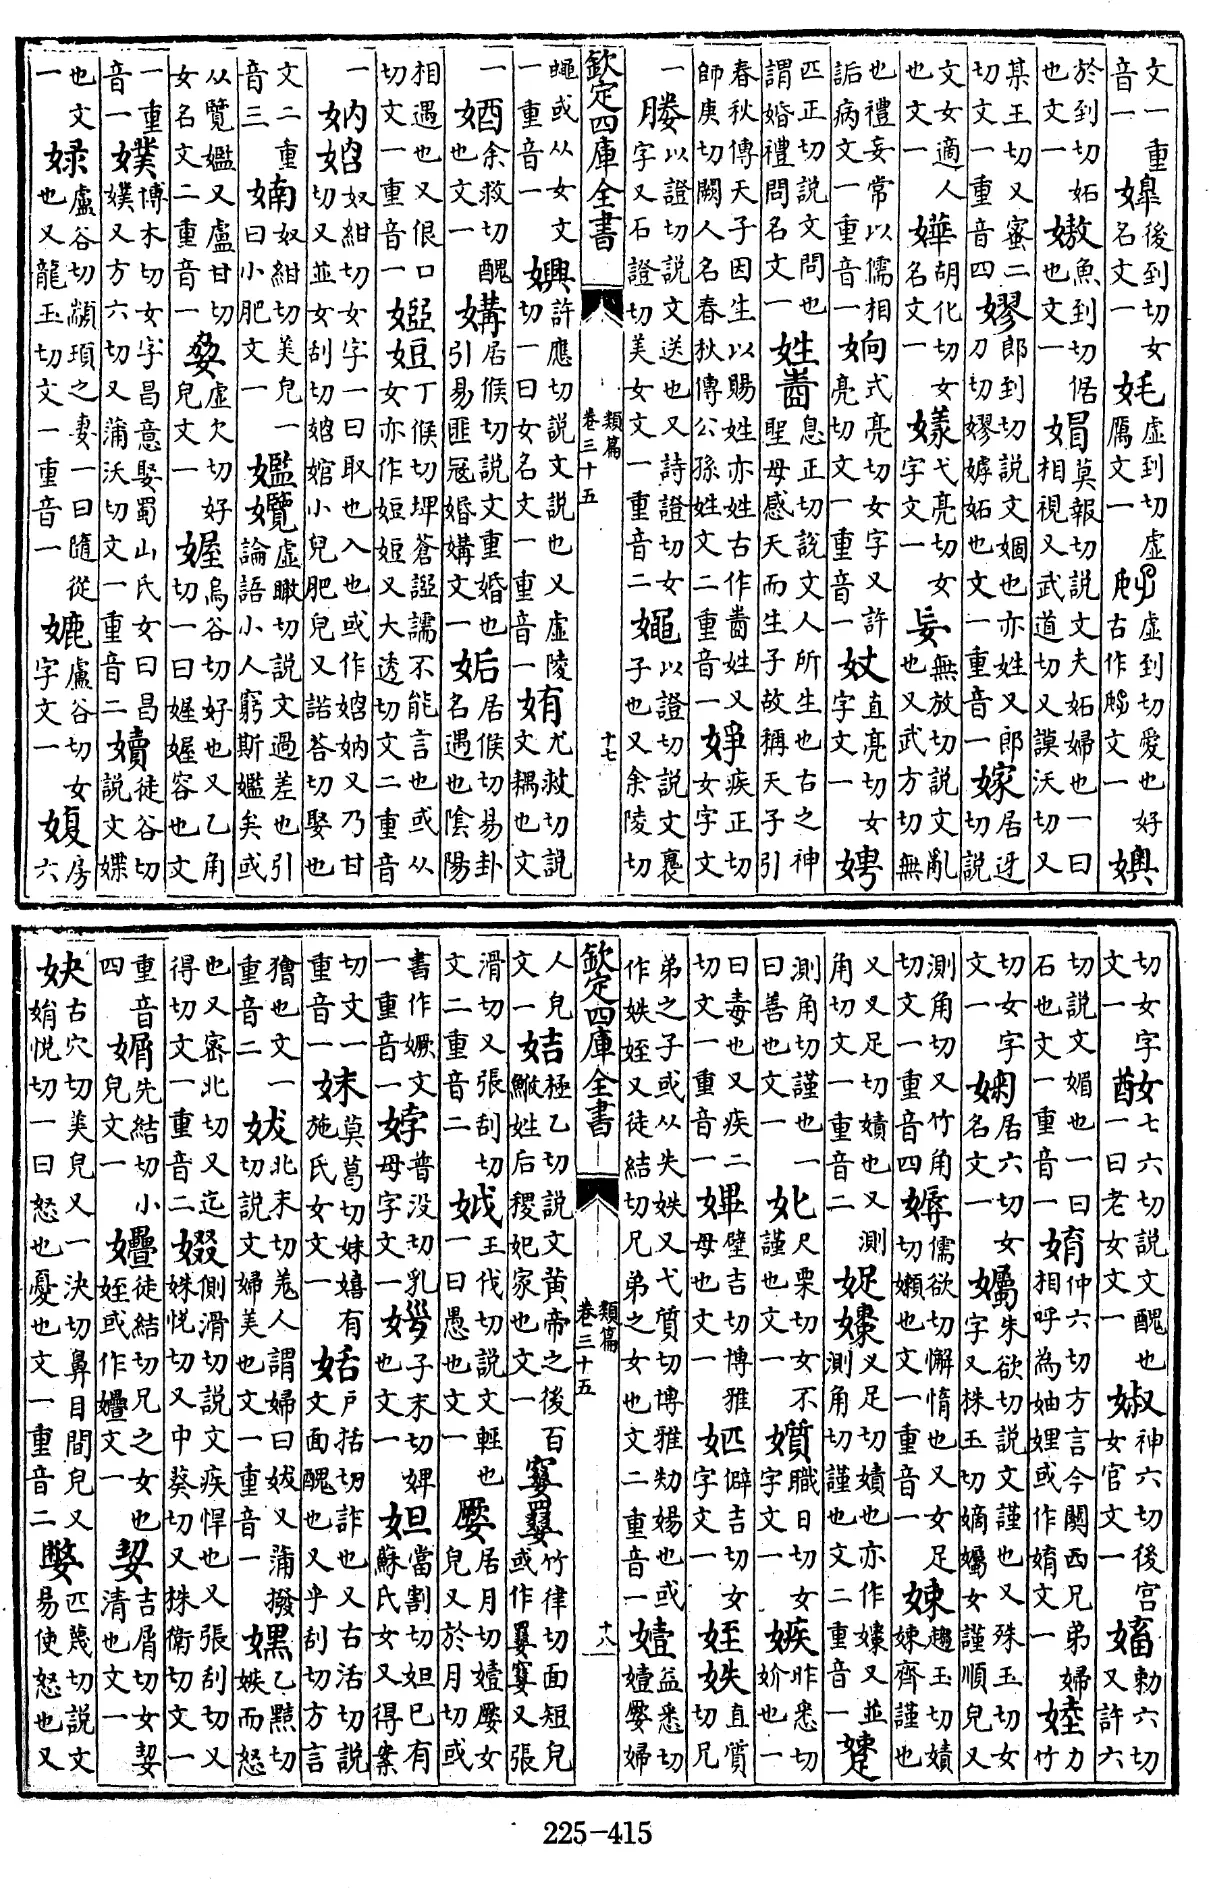 文一重音一 㜔後到切女名文一 㚪虛到切虛厲文一 𡚽虛到切愛也好古作𡥆文一 嬩
於到切妬也文一 嫯魚到切倨也文一 媢莫報切說文夫妬婦也一曰相視又武道切又謨沃切又
某王切又蜜二切文一重音四 嫪郎到切說文婟也亦姓又郎刀切嫪嫮妬也文一重音一 嫁居迓切說
文女適人也文一 嬅胡化切女名文一 㨾弋亮切女字文一 妄無放切說文亂也又武方切無
也禮妄常以儒相詬病文一重音一 姠式亮切女字又許亮切文一重音一 㚫直亮切女字文一 娉
匹正切說文問也謂婚禮問名文一 姓𤯣息正切說文人所生也古之神聖母感天而生子故稱天子引
春秋傳天子因生以賜姓亦姓古作𤯣姓又師庚切闕人名春秋傳公孫姓文二重音一 婙疾正切女字文
一 㛪以證切說文送也又詩證切女字又石證切美女文一重音二 㛱以證切說文裹子也又余陵切
欽定四庫全書 類篇卷三十五 十七
蠅或从女文一重音一 嬹許應切說文說也又虛陵切一曰女名文一重音一 姷尤救切說文耦也文
一 𡞧余救切醜也文一 媾居候切說文重婚也引易匪冦婚媾文一 姤居候切易卦名遇也陰陽
相遇也又佷口切文一重音一 娙䇺丁候切埤蒼䛠譳不能言也或从女亦作䇺䇺又大透切文二重音
一 妠㛼奴紺切女字一曰取也入也或作㛼妠又乃甘切又並女刮切㛼婠小兒肥皃又諾荅切娶也
文二重音三 婻奴紺切美皃一曰小肥文一 㜮孄虛瞰切說文過差也引論語小人窮斯㜮矣或
从覽㜮又盧甘切女名文二重音一 㛍虛欠切好皃文一 媉烏谷切好也又乙角切一曰媉媉容也文
一重音一 㜑博木切女字昌意娶蜀山氏女曰昌㜑又方六切又蒲沃切文一重音二 嬻徒谷切說文媟
也文一 娽盧谷切顓頊之妻一曰隨從也又龍玉切文一重音一 𡡜盧谷切女字文一 𡞪房六
切女字文一 𡠽七六切說文醜也一曰老女文一 婌神六切後宮女官文一 嬸勑六切又許六
切說文媚也一曰石也文一重音一 媦仲六切方言今關西兄弟婦相呼為妯娌或作媦文一 㛴力竹
切女字文一 㛦居六切女名文一 孎朱欲切說文謹也又殊玉切女字又株玉切嫡孎女謹順皃又
測角切又竹角切文一重音四 媷儒欲切懈惰也又女足切嬾也文一重音一 娕趨玉切嫧娕齊謹也
又叉足切嫧也又測角切文一重音二 娖㜚叉足切嫧也亦作㜚又並測角切謹也文二重音一 㜚
測角切謹也一曰善也文一 㚹尺栗切女不謹也文一 㜱職日切女字文一 嫉昨悉切妎也一
曰毒也又疾二切文一重音一 㜙壁吉切博雅母也文一 㚰僻吉切女字文一 姪妷直質切兄
弟之子或从失妷又弋質切博雅㔢婸也或作妷姪又徒結切兄弟之女也文二重音一 㜇益悉切㜇㜰婦
欽定四庫全書 類篇卷三十五 十八
人皃文一 姞極乙切說文黃帝之後百鮍姓后稷妃家也文一 㜫㜳竹律切面短皃或作㜳㜫又張
滑切又張刮切文二重音二 娍王伐切說文輕也一曰愚也文一 㜰居月切㜇㜰女皃又於月切或
書作嫩文一重音一 㛘普没切乳母字文一 㛫子末切婢也文一 妲當割切妲己有蘇氏女又得案
切文一重音一 妺莫葛切妺嬉有施氏女文一 姡戶括切詐也又古活切說文面醜也又乎刮切方言
獪也文一重音二 妭北末切羌人謂婦曰妭又蒲撥切說文婦美也文一重音一 嫼乙黠切嫉而怒
也又密北切又迄得切文一重音二 娺側滑切說文疾悍也又張刮切又姝悅切又中葵切又株衛切文一
重音四 㛕先結切小皃文一 㜼徒結切兄之女也姪或作㜼文一 㛃吉屑切女㛃清也文一
妜古穴切美皃又一決切鼻目間皃又娟悅切一曰怒也憂也文一重音二 嫳匹蔑切說文易使怒也又
225-415